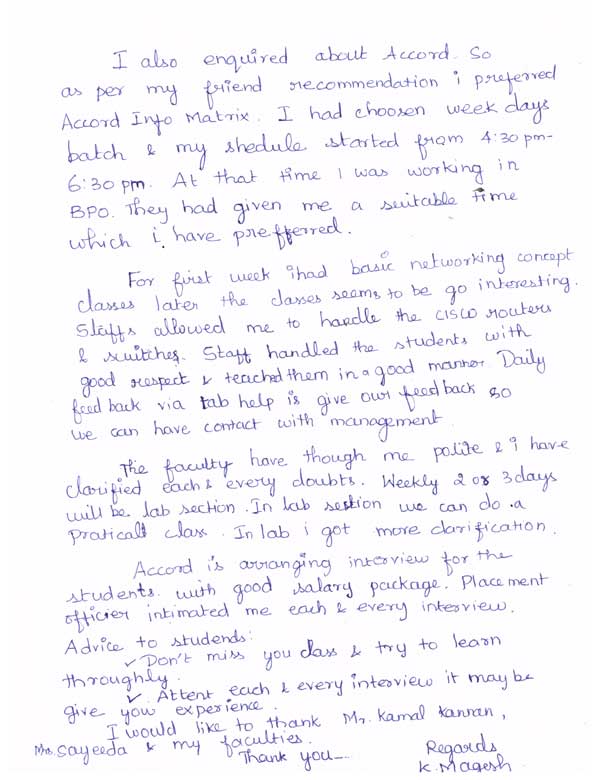 I also enquired about Accord. So
as per my friend recommendation i preferred
Accord Info Matrix. I had choosen week days
batch & my shedule started from 4:30 pm-
6:30 pm. At that time I was working in
BPO. They had given me a suitable time
which i have preffered.
For first week ihad basic networking concept
classes later the classes seems to be go interesting.
Staffs allowed me to handle the CISCO routers
& switches. Staff handled the students with
good respect & teached them in a good manner. Daily
feed back via tab help is give our feed back so
we can have contact with management.
The faculty have though me polite & i have
clarified each & every doubts. Weekly 2 or 3 days
will be lab section. In lab section we can do a
praticall class. In lab i got more clarification.
Accord is arranging interview for the
students with good salary package. Placement
officier intimated me each & every interview.
Advice to studends:
✓ Don't miss you class & try to learn
throughly.
✓ Attent each & every interview it may be
give you experience.
I would like to thank Mr. Kamal Kannan,
Mrs. Sayeeda & my faculties.
Thank you....
Regards
K. Magesh